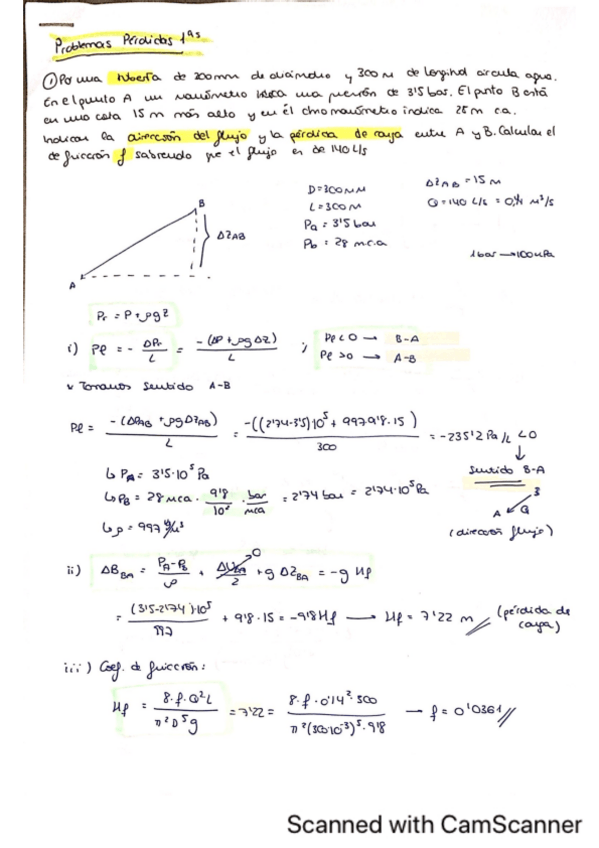 Problemas Pérdidas 1as
① Por una tubería de 300mm de diámetro y 300 m de longitud circula agua.
En el punto A un manómetro indica una presión de 3'5 bar. El punto B está
en una cota 15 m más alto y en él otro manómetro indica 28 m c.a.
Indicar la dirección del flujo y la pérdida de carga entre A y B. Calcular el
de fricción f sabiendo que el flujo es de 140 L/s
D=300MM ΔZAB = 15 M
L=300M Q=140 L/s = 0'14 m³/s
Pa = 3'5 bar
Pb = 28 m.c.a
1 bar → 100 kPa
B
ΔZAB
A
Pr = P + ρgz
i) Pe = - ΔPr / L = -(ΔP + ρgΔz) / L ; Pe < 0 → B-A
Pe > 0 → A-B
Tomamos Sentido A-B
Pe = -(ΔPAB + ρgΔZAB) / L = -((2'74-3'5)10⁵ + 997·9'8·15) / 300 = -235'2 Pa/L < 0
↳ PA = 3'5·10⁵ Pa
Sentido B-A
↳ PB = 28 mca · 9'8/10² · bar/mca = 2'74 bar = 2'74·10⁵ Pa
B
A Q
↳ ρ = 997 kg/m³
(dirección flujo)
ii) ΔBBA = PA-PB / ρ + ΔU²BA / 2 → 0 + gΔZBA = -g Hf
= (3'5-2'74)·10⁵ / 997 + 9'8·15 = -9'8Hf → Hf = 7'22 m (pérdida de
carga)
iii) Coef. de fricción:
Hf = 8·f·Q²L / π²D⁵g = 7'22 = 8·f·0'14²·300 / π²(300·10⁻³)⁵·9'8 → f = 0'0361
Scanned with CamScanner